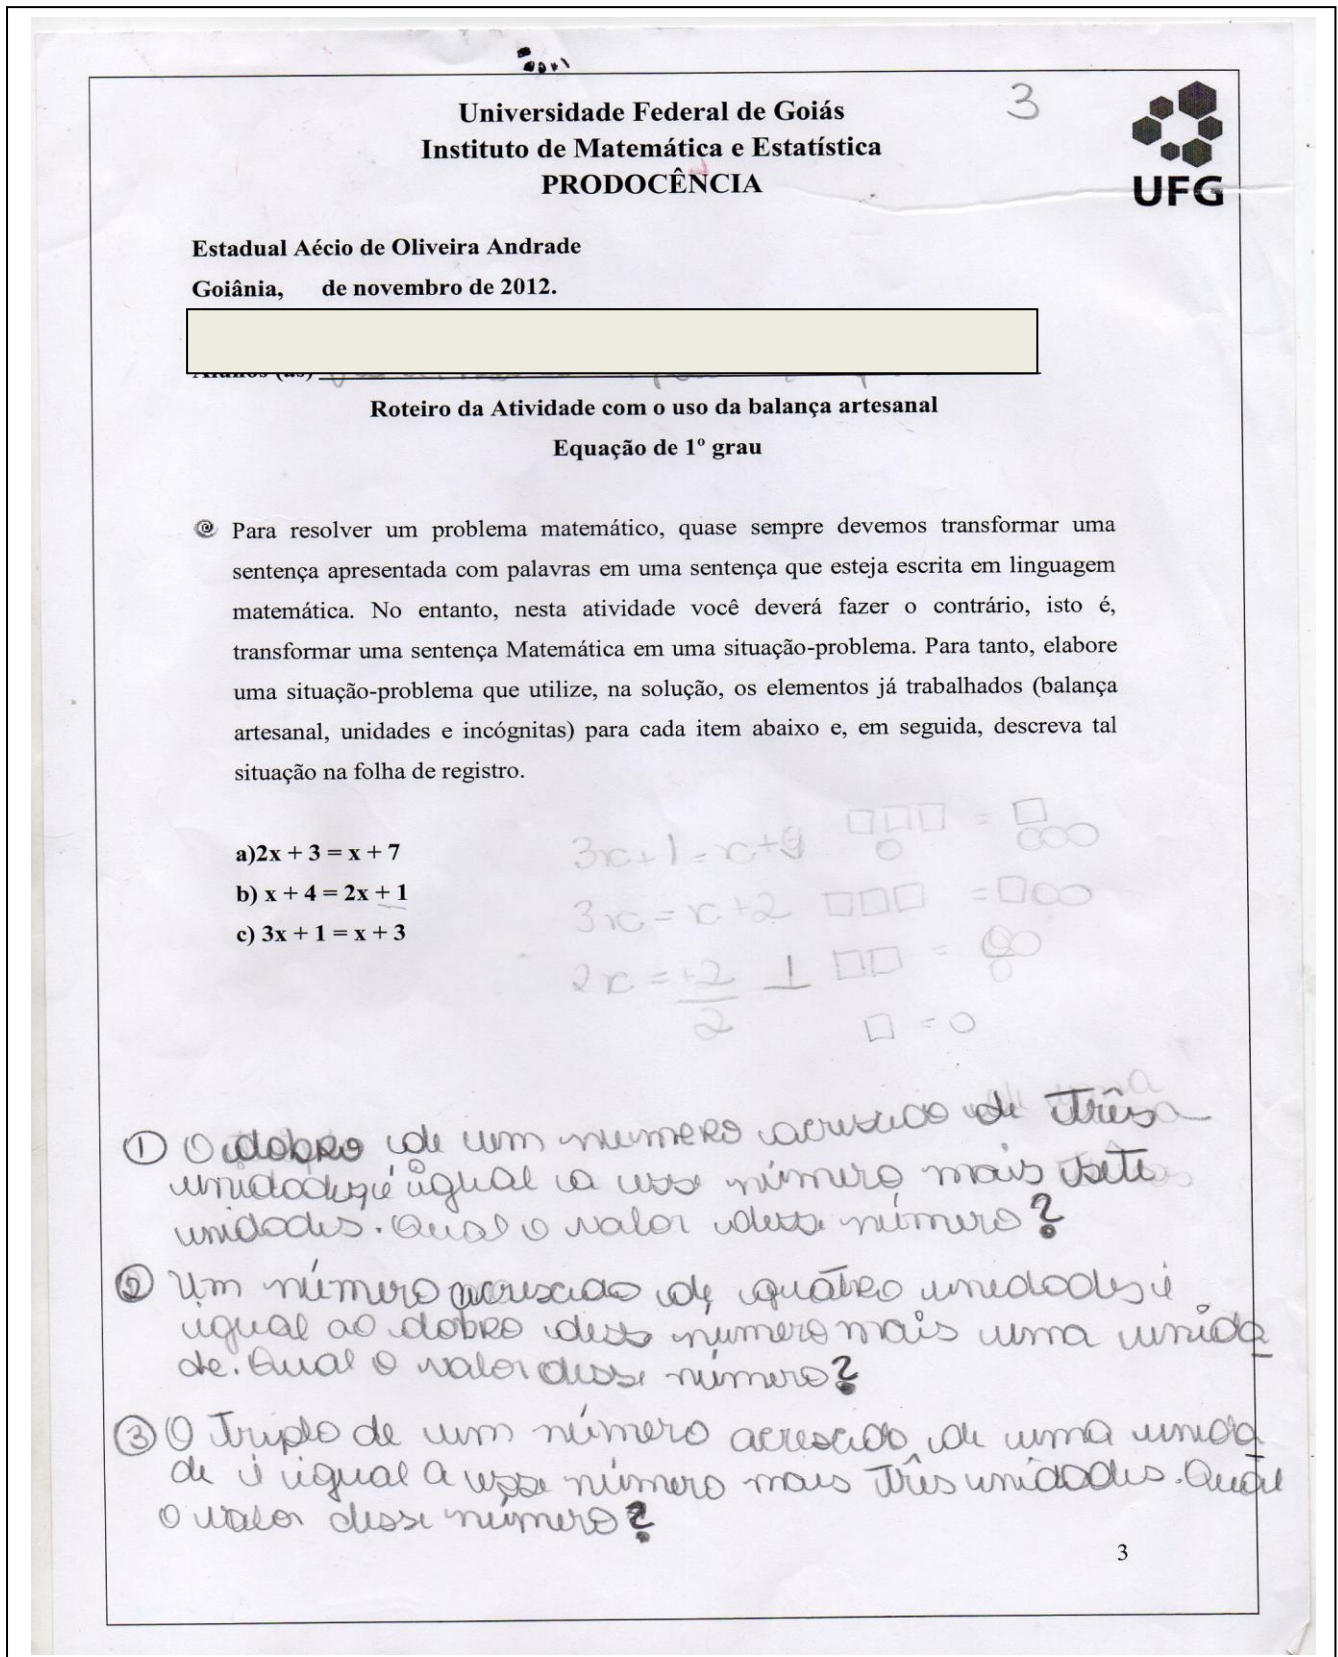 3
Universidade Federal de Goiás
Instituto de Matemática e Estatística
PRODOCÊNCIA
UFG
Estadual Aécio de Oliveira Andrade
Goiânia, de novembro de 2012.
Roteiro da Atividade com o uso da balança artesanal
Equação de 1º grau
Para resolver um problema matemático, quase sempre devemos transformar uma
sentença apresentada com palavras em uma sentença que esteja escrita em linguagem
matemática. No entanto, nesta atividade você deverá fazer o contrário, isto é,
transformar uma sentença Matemática em uma situação-problema. Para tanto, elabore
uma situação-problema que utilize, na solução, os elementos já trabalhados (balança
artesanal, unidades e incógnitas) para cada item abaixo e, em seguida, descreva tal
situação na folha de registro.
a)2x + 3 = x + 7
b) x + 4 = 2x + 1
c) 3x + 1 = x + 3
3x+1=x+
3x = x +2 □□□ =□○○
2x = +2/2 1 □□ =
□ = ○
① O dobro de um numero acrescido de três
unidades é igual a esse número mais sete
unidades. Qual o valor desse número?
② Um número acrescido de quatro unedades é
igual ao dobro desse número mais uma unida
de. Qual o valor desse número?
③ O Triplo de um número acrescido de uma unida
de é igual a esse número mais três unidades. Qual
o valor desse número?
3